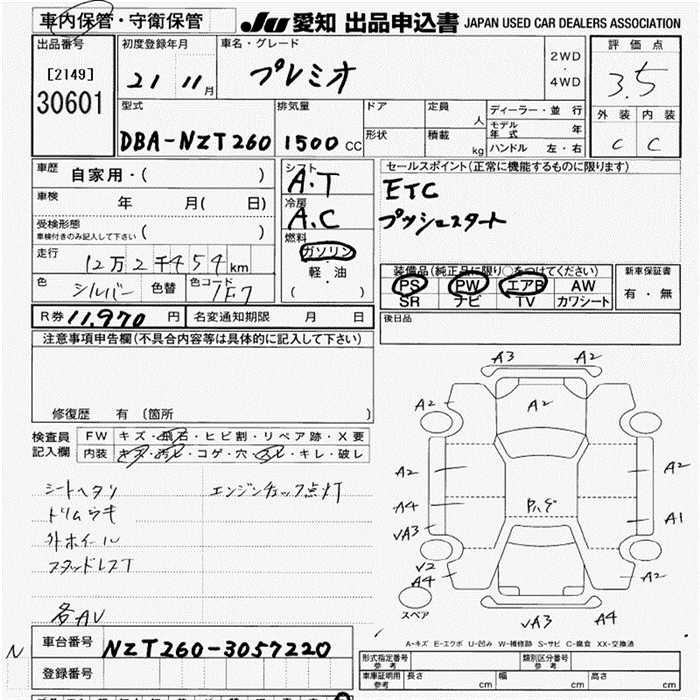 車内保管・守衛保管 JU 愛知 出品申込書 JAPAN USED CAR DEALERS ASSOCIATION
出品番号 初度登録年月 車名・グレード 評価点
[2149] 21 11月 プレミオ 2WD・4WD 3.5
30601 外装 内装
型式 排気量 ドア 定員 人 ディーラー・並行
モデル年式 年
DBA-NZT260 1500cc 形状 積載 kg ハンドル 左・右 C C
車歴 自家用・( ) シフト A.T セールスポイント(正常に機能するものに限ります)
車検 年 月( 日) 冷房 A.C ETC
受検形態 車検付きのみ記入して下さい ( ) 燃料 プッシュスタート
走行 12万2千454km ガソリン・軽油 ( ) 装備品(純正品に限り○をつけてください) 新車保証書
色 シルバー 色替 色コード 1F7 PS PW エアB AW 有・無
SR ナビ TV カワシート
R券 11,970円 名変通知期限 月 日 後日品
注意事項申告欄(不具合内容等は具体的に記入して下さい)
修復歴 有(箇所 )
検査員記入欄 FW キズ・飛石・ヒビ割・リペア跡・X要
内装 キズ・汚レ・コゲ・穴・スレ・キレ・破レ
シートヘタリ エンジンチェック点灯
トリムウキ
外ホイール
スタッドレスT
各AV
A3 A2
A2 A2 A2
A2 A2
A4 Pハゲ
VA3 A1
V2
A4 A2
スペア
VA3 A4
A-キズ E-エクボ U-凹み W-補修跡 S-サビ C-腐食 XX-交換済
N 車台番号 NZT260-3057220
登録番号
型式指定番号 参考 類別区分番号 参考
車庫証明用 参考 長さ cm 幅 cm 高さ cm